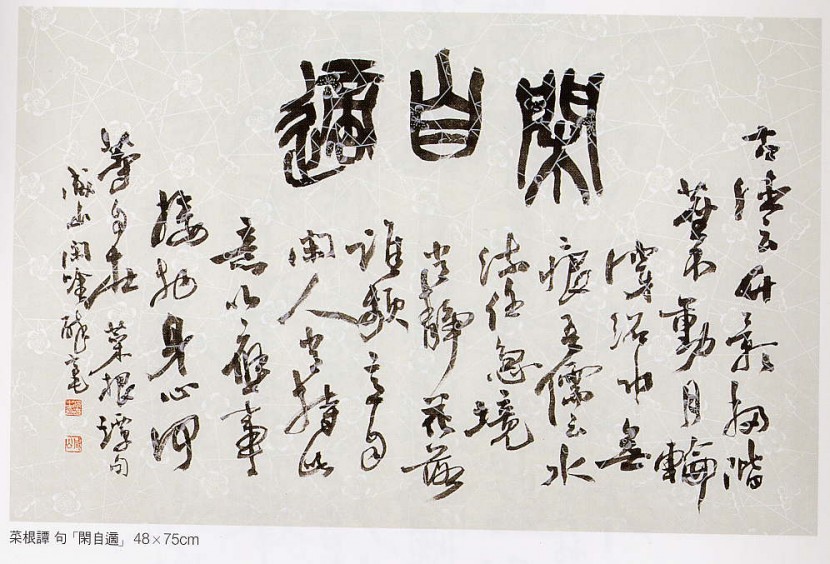 閑自適
古德云竹影掃階
塵不動月輪
穿沼水無
痕吾儒云水
流任急境
常靜花落
雖頻意自
閑人常持此
意以應事
接物身心何
等自在 菜根譚句
山閑吟醉毫
菜根譚 句「閑自適」 48×75cm